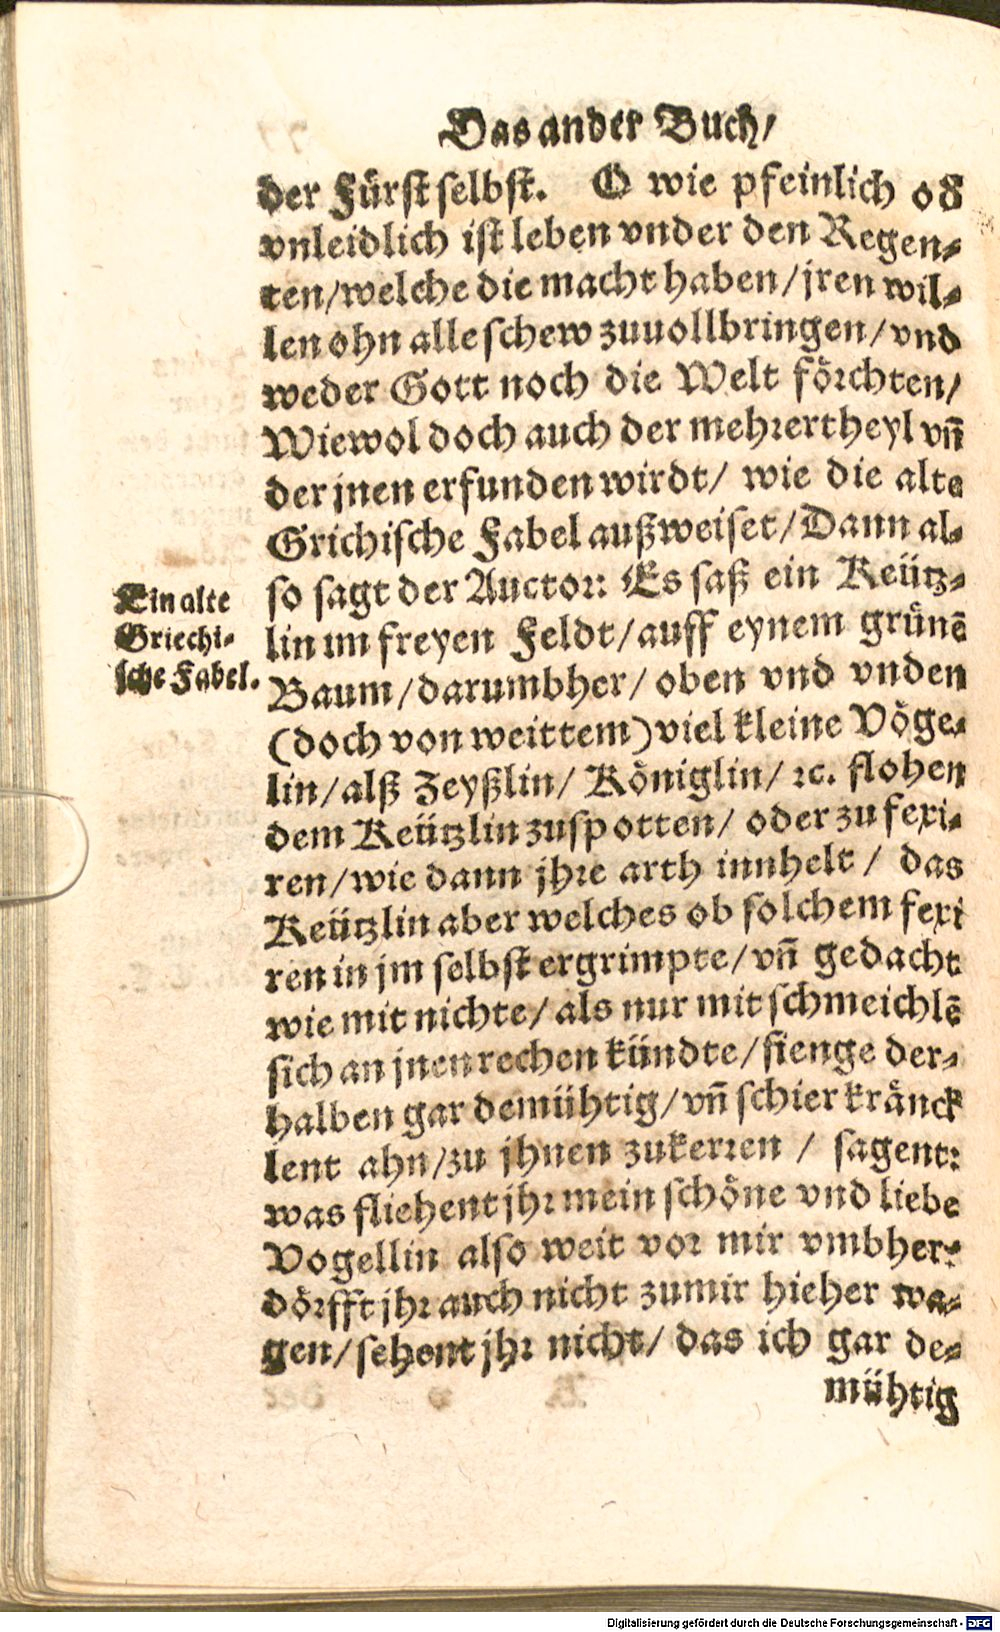 Das ander Buch/
der Fürst selbst. O wie pfeinlich od
vnleidlich ist leben vnder den Regen-
ten/welche die macht haben/jren wil-
len ohn alle schew zuuollbringen/vnd
weder Gott noch die Welt förchten/
Wiewol doch auch der mehrertheyl vn̄
der jnen erfunden wirdt/ wie die alte
Grichische Fabel außweiset/Dann al-
so sagt der Auctor: Es saß ein Keützlin-
lin im freyen Feldt/auff eynem grünē
Baum/darumbher/ oben vnd vnden
(doch von weittem) viel kleine Vöge-
lin/alß Zeyßlin/ Königlin/ ꝛc. flohen
dem Keützlin zuspotten/ oder zu fexi-
ren/wie dann jhre arth innhelt/ das
Keützlin aber welches ob solchem fexi
ren in jm selbst ergrimpte/vn̄ gedacht
wie mit nichte/ als nur mit schmeichlē
sich an jnen rechen kündte/fienge der-
halben gar demühtig/vn̄ schier kränck
lent ahn/zu jhnen zukerren/ sagent:
was fliehent jhr mein schöne vnd liebe
Vogellin also weit vor mir vmbher:
dörfft jhr auch nicht zumir hieher wa-
gen/sehent jhr nicht/ das ich gar de-
mühtig
Ein alte
Griechi-
sche Fabel.
Digitalisierung gefördert durch die Deutsche Forschungsgemeinschaft - DFG